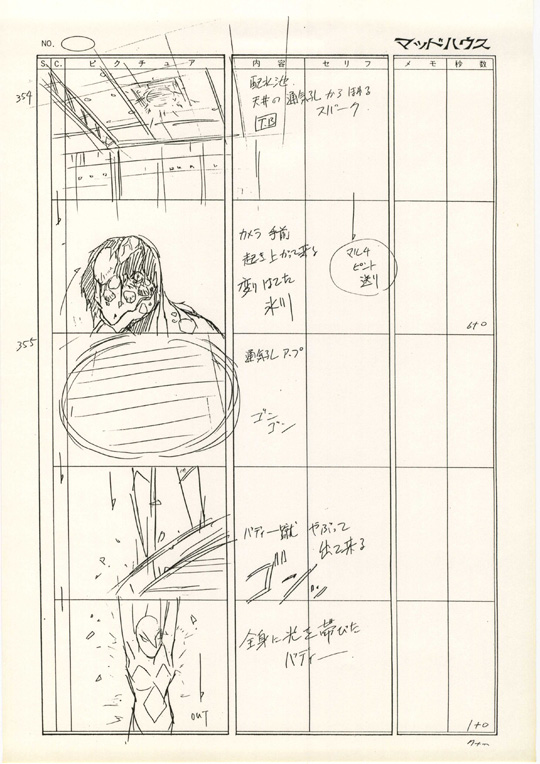 NO.
マッドハウス
S. C. ピクチュア 内容 セリフ メモ 秒数
354
配水池
天井の通気孔から
スパーク
T.B
カメラ手前
起き上がって来る
変りはてた
氷川
マルチ
ピント
送り
6+0
355
通気孔アップ
ゴン
ゴン
バディー蹴やぶって
出て来る
ゴーッ
全身に光を帯びた
バディー
OUT
1+0